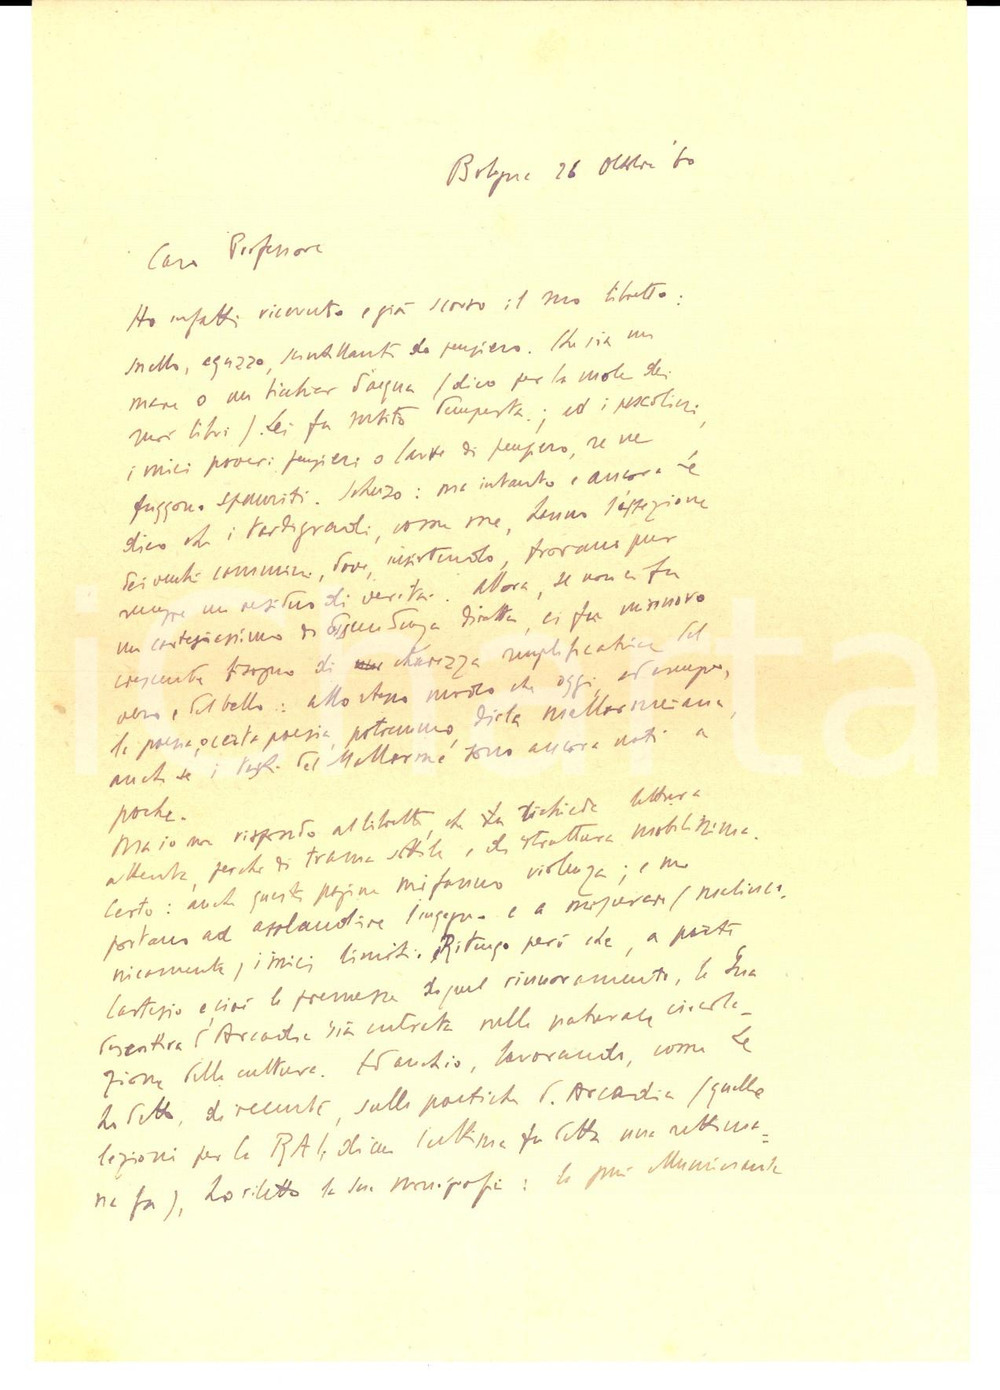 Bologna 26 Ottobre '60
Caro Professore
Ho infatti ricevuto e già scorso il suo libretto:
snello, aguzzo, scintillante di pensiero. Che sia un
mare o un bicchier d'acqua (dico per la mole dei
suoi libri) Lei fa subito tempesta; ed i pesciolini,
i miei poveri pensieri o larve di pensiero, se ne
fuggono spauriti. Scherzo: ma intanto e ancora Le
dico che i tardigradi, come me, hanno l'affezione
dei luoghi comuni, dove, insistendo, trovano pur
sempre un residuo di verità. Allora, se non ci fu
un cartesianesimo di discendenza diretta, ci fu un nuovo
crescente bisogno di chiarezza semplificatrice del
vero e del bello: allo stesso modo che oggi, ad esempio,
la poesia, o certa poesia, potremmo dirla mallarmeiana,
anche se i testi del Mallarmé sono ancora noti a
pochi.
Ma io non rispondo al libretto, che richiede lettura
attenta, perché di trama sottile e di struttura mobilissima.
Certo: anche queste pagine mi fanno violenza; e mi
portano ad applaudire l'ingegno e a misurare (malinco-
nicamente) i miei limiti. Ritengo però che, a parte
Cartesio e cioè le premesse di quel rinnovamento, la Sua
d'Arcadia sia entrata nella naturale circola-
zione della cultura. Ed anch'io, lavorando, come Le
ho detto, di recente, sulle poetiche d'Arcadia (quelle
lezioni per la RAI, di cui l'ultima fu detta una settima=
na fa), ho riletto la sua monografia: la più illuminante